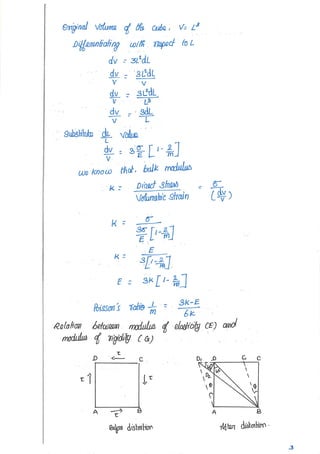 Original Volume of the cube, V = L³
Differentiating with respect to L
dv = 3L²dL
dv/V = 3L²dL/V
dv/V = 3L²dL/L³
dv/V = 3dL/L
Substitute dL/L value
dv/V = 3σ/E [1 - 2/m]
we know that, bulk modulus
K = Direct Stress / Volumetric Strain = σ / (dv/V)
K = σ / 3σ/E [1 - 2/m]
K = E / 3[1 - 2/m]
E = 3K [1 - 2/m]
Poisson's ratio 1/m = 3K-E / 6K
Relation between modulus of elasticity (E) and
modulus of rigidity (G)
D τ C
τ τ
A τ B
Before distortion
D₁ D C₁ C
A B
After distortion
3